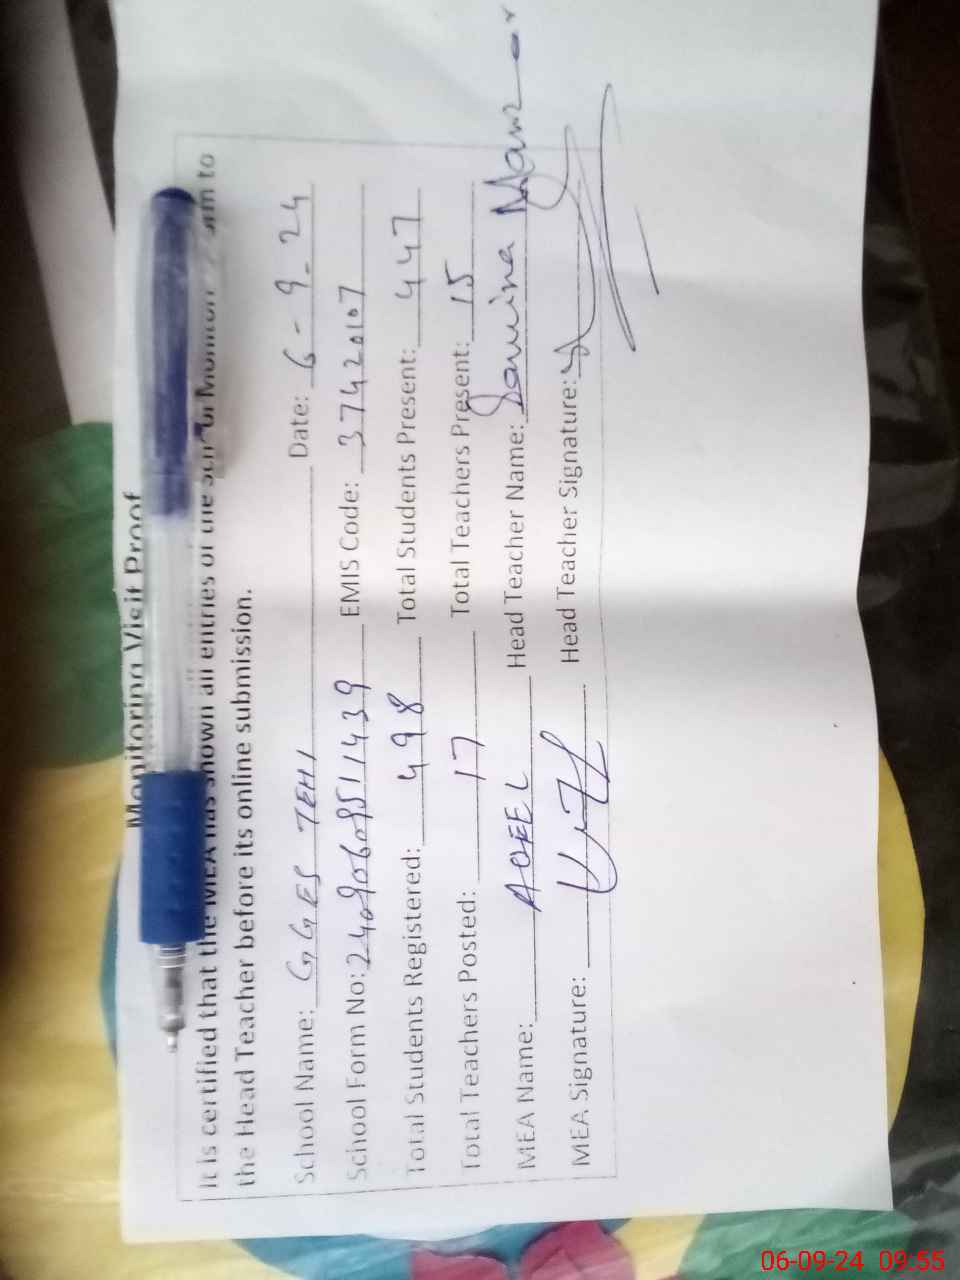 Monitoring Visit Proof
It is certified that the MEA has shown all entries of the to
the Head Teacher before its online submission.
School Name: GGES TEHI Date: 6-9-24
School Form No: 24090609511439 EMIS Code: 37420107
Total Students Registered: 498 Total Students Present: 447
Total Teachers Posted: 17 Total Teachers Present: 15
MEA Name: AQEEL Head Teacher Name: Samina Manzoor
MEA Signature: Head Teacher Signature:
06-09-24 09:55